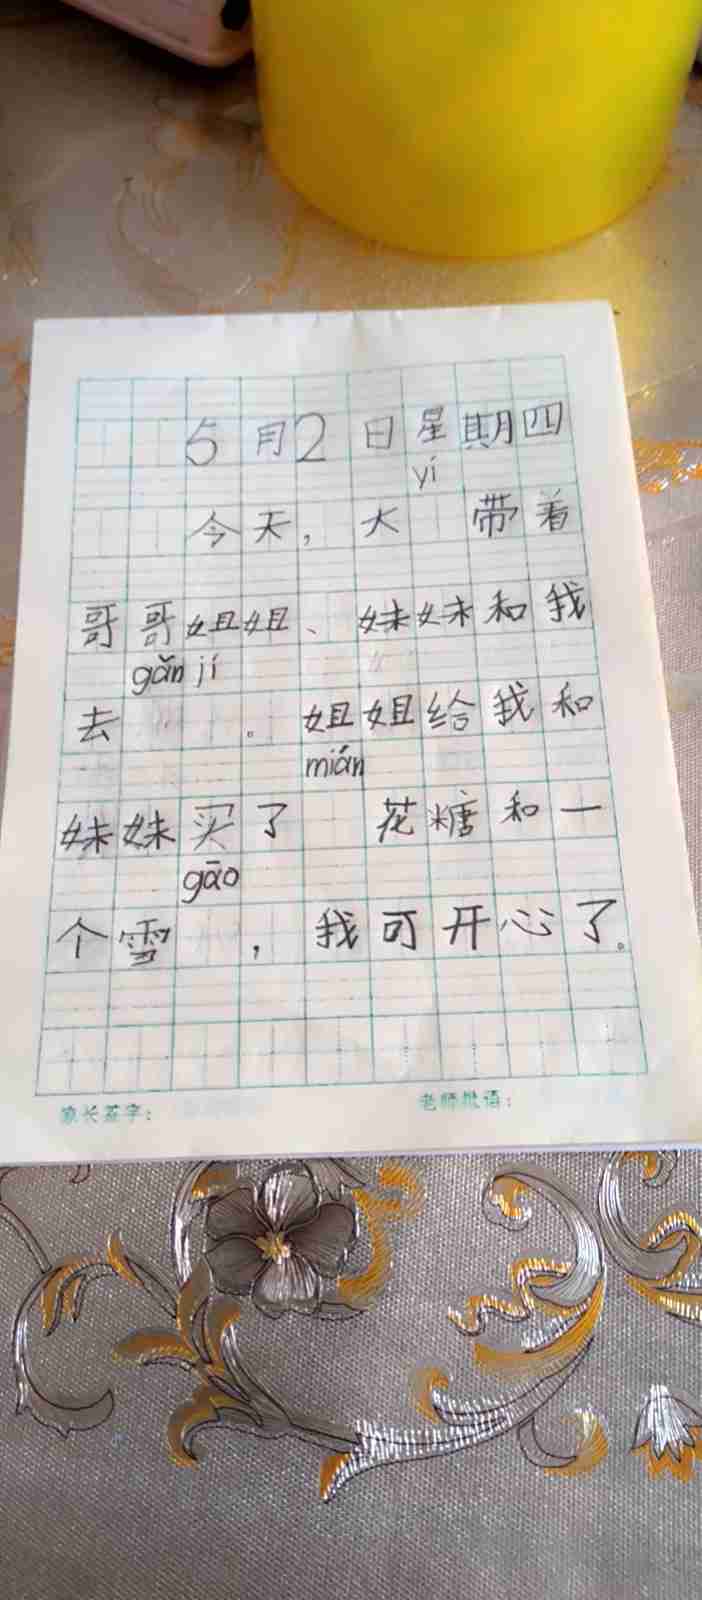 5月2日星期四
yí
今天，大 带着
哥哥姐姐、妹妹和我
gǎn jí
去 。姐姐给我和
mián
妹妹买了 花糖和一
gāo
个雪 ，我可开心了。
家长签字：
老师批语：